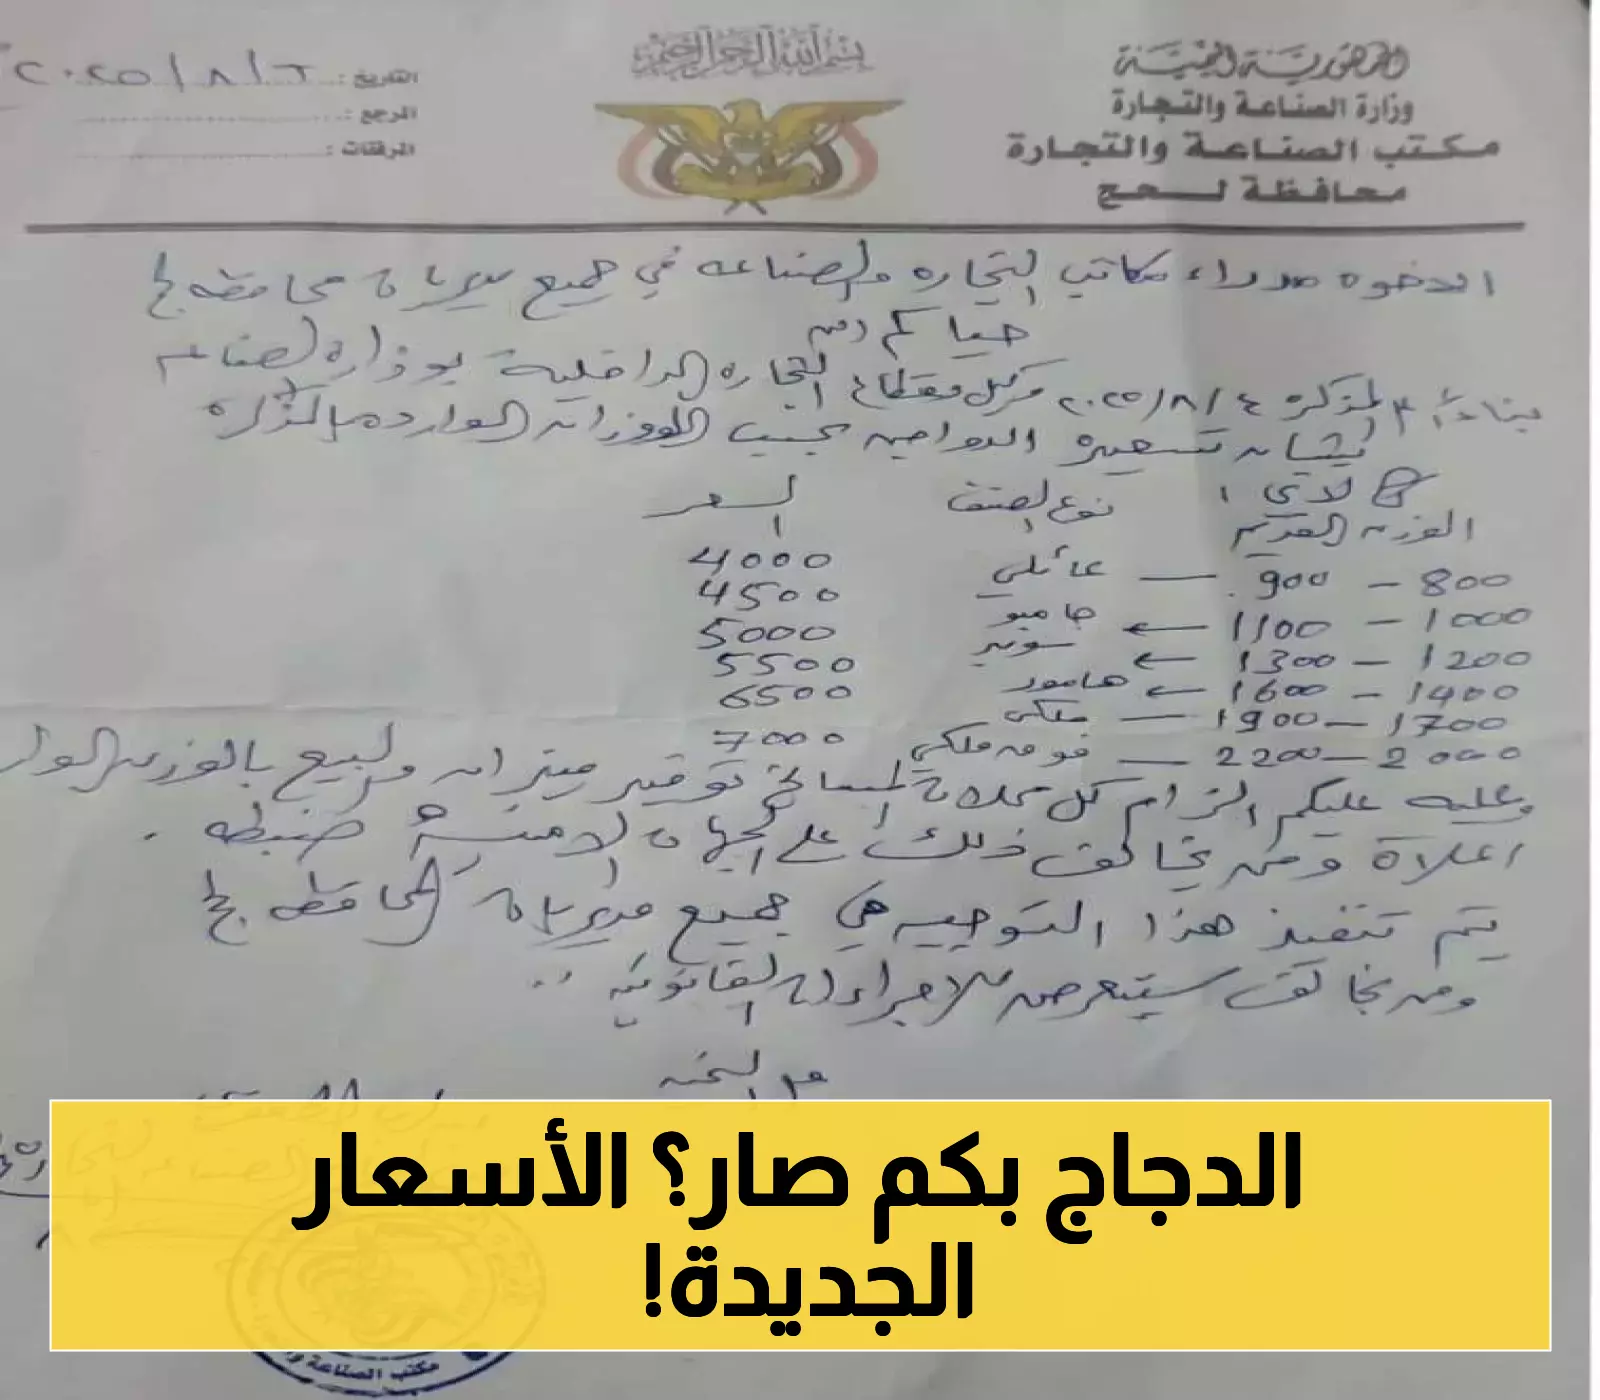 بسم الله الرحمن الرحيم
الجمهورية اليمنية
وزارة الصناعة والتجارة
مكتب الصناعة والتجارة
محافظة لحج
التاريخ:
المرجع:
المرفقات:
الاخوه مدراء مكاتب التجاره والصناعه في جميع مديريات محافظه لحج
حياكم الله
بناءً المذكره ٢٠٢٥/٨/٤ قطاع التجاره الداخلية بوزارة الصناعه
بشان تسعيره الدواجن بحسب الاوزان الوارده بالمذكرة
كالاتي
الوزن القديم نوع الصنف السعر
800 - 900 عائلي 4000
1000 - 1100 جامبو 4500
1200 - 1300 سوبر 5000
1400 - 1600 هامور 5500
1700 - 1900 ملكي 6500
2000 - 2200 فوق ملكي 7000
وعليه عليكم الزام كل محلات المسالخ توفير ميزان والبيع بالوزن
اعلاة ومن يخالف ذلك على الجهات الامنية ضبطه .
يتم تنفيذ هذا التوجيه في جميع مديريات المحافظه لحج
ومن يخالف سيتعرض للاجراءات القانونيه ..
الدجاج بكم صار؟ الأسعار
الجديدة!
مكتب الصناعة